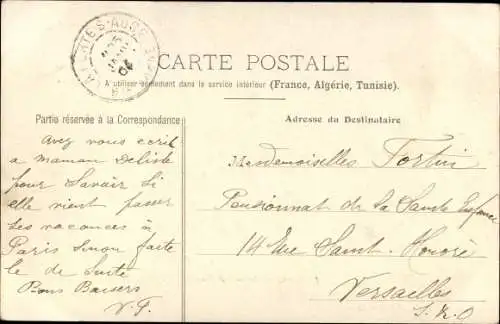 CARTE POSTALE
A utiliser seulement dans le service intérieur (France, Algérie, Tunisie).
Partie réservée à la Correspondance
Adresse du Destinataire
Avez vous ecrit
a maman Delisle
pour Savoir Si
elle vient passer
Ses vacances à
Paris Sinon faite
le de Suite
Bons Baisers
V. F.
Mesdemoiselles Fortin
Pensionnat de la Sainte Enfance
14 Rue Saint-Honoré
Versailles
S. & O